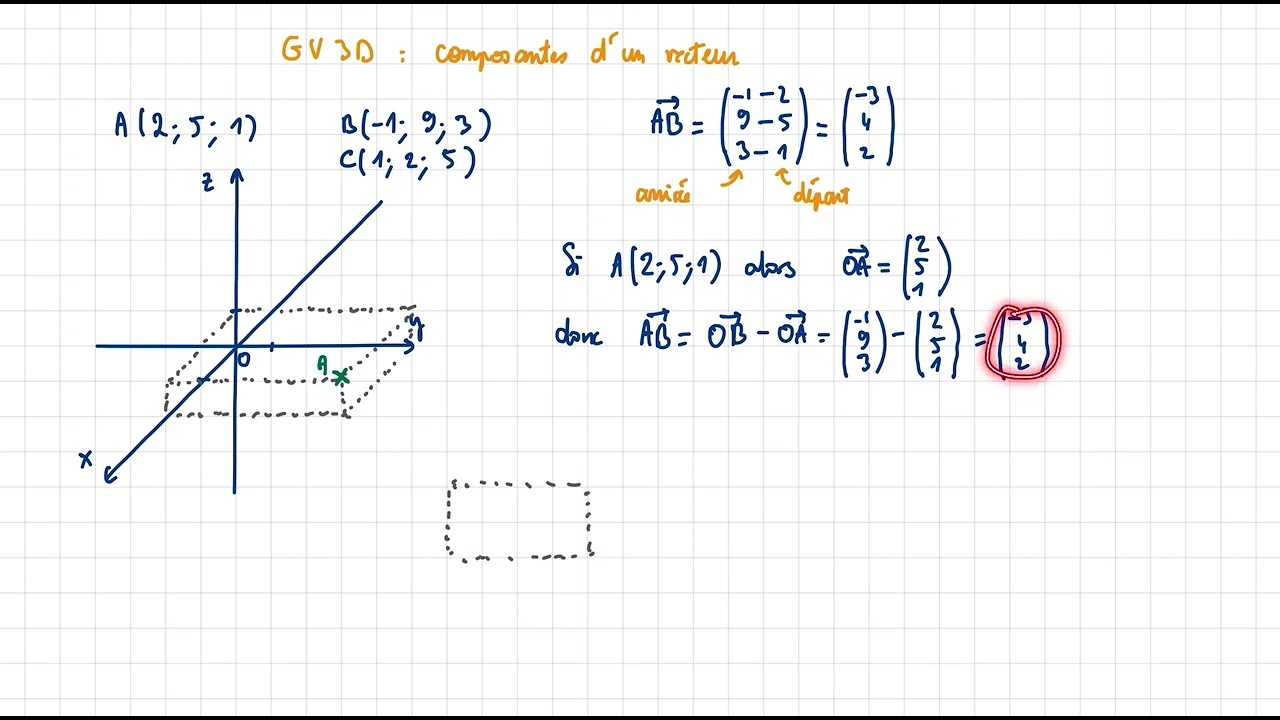 GV3D : composantes d'un vecteur
A(2; 5; 1)
B(-1; 9; 3)
C(1; 2; 5)
AB⃗ = (-1 -2 / 9 - 5 / 3 - 1) = (-3 / 4 / 2)
arrivée départ
z
y
O
A
x
Si A(2;5;1) alors OA⃗ = (2 / 5 / 1)
donc AB⃗ = OB⃗ - OA⃗ = (-1 / 9 / 3) - (2 / 5 / 1) = (-3 / 4 / 2)